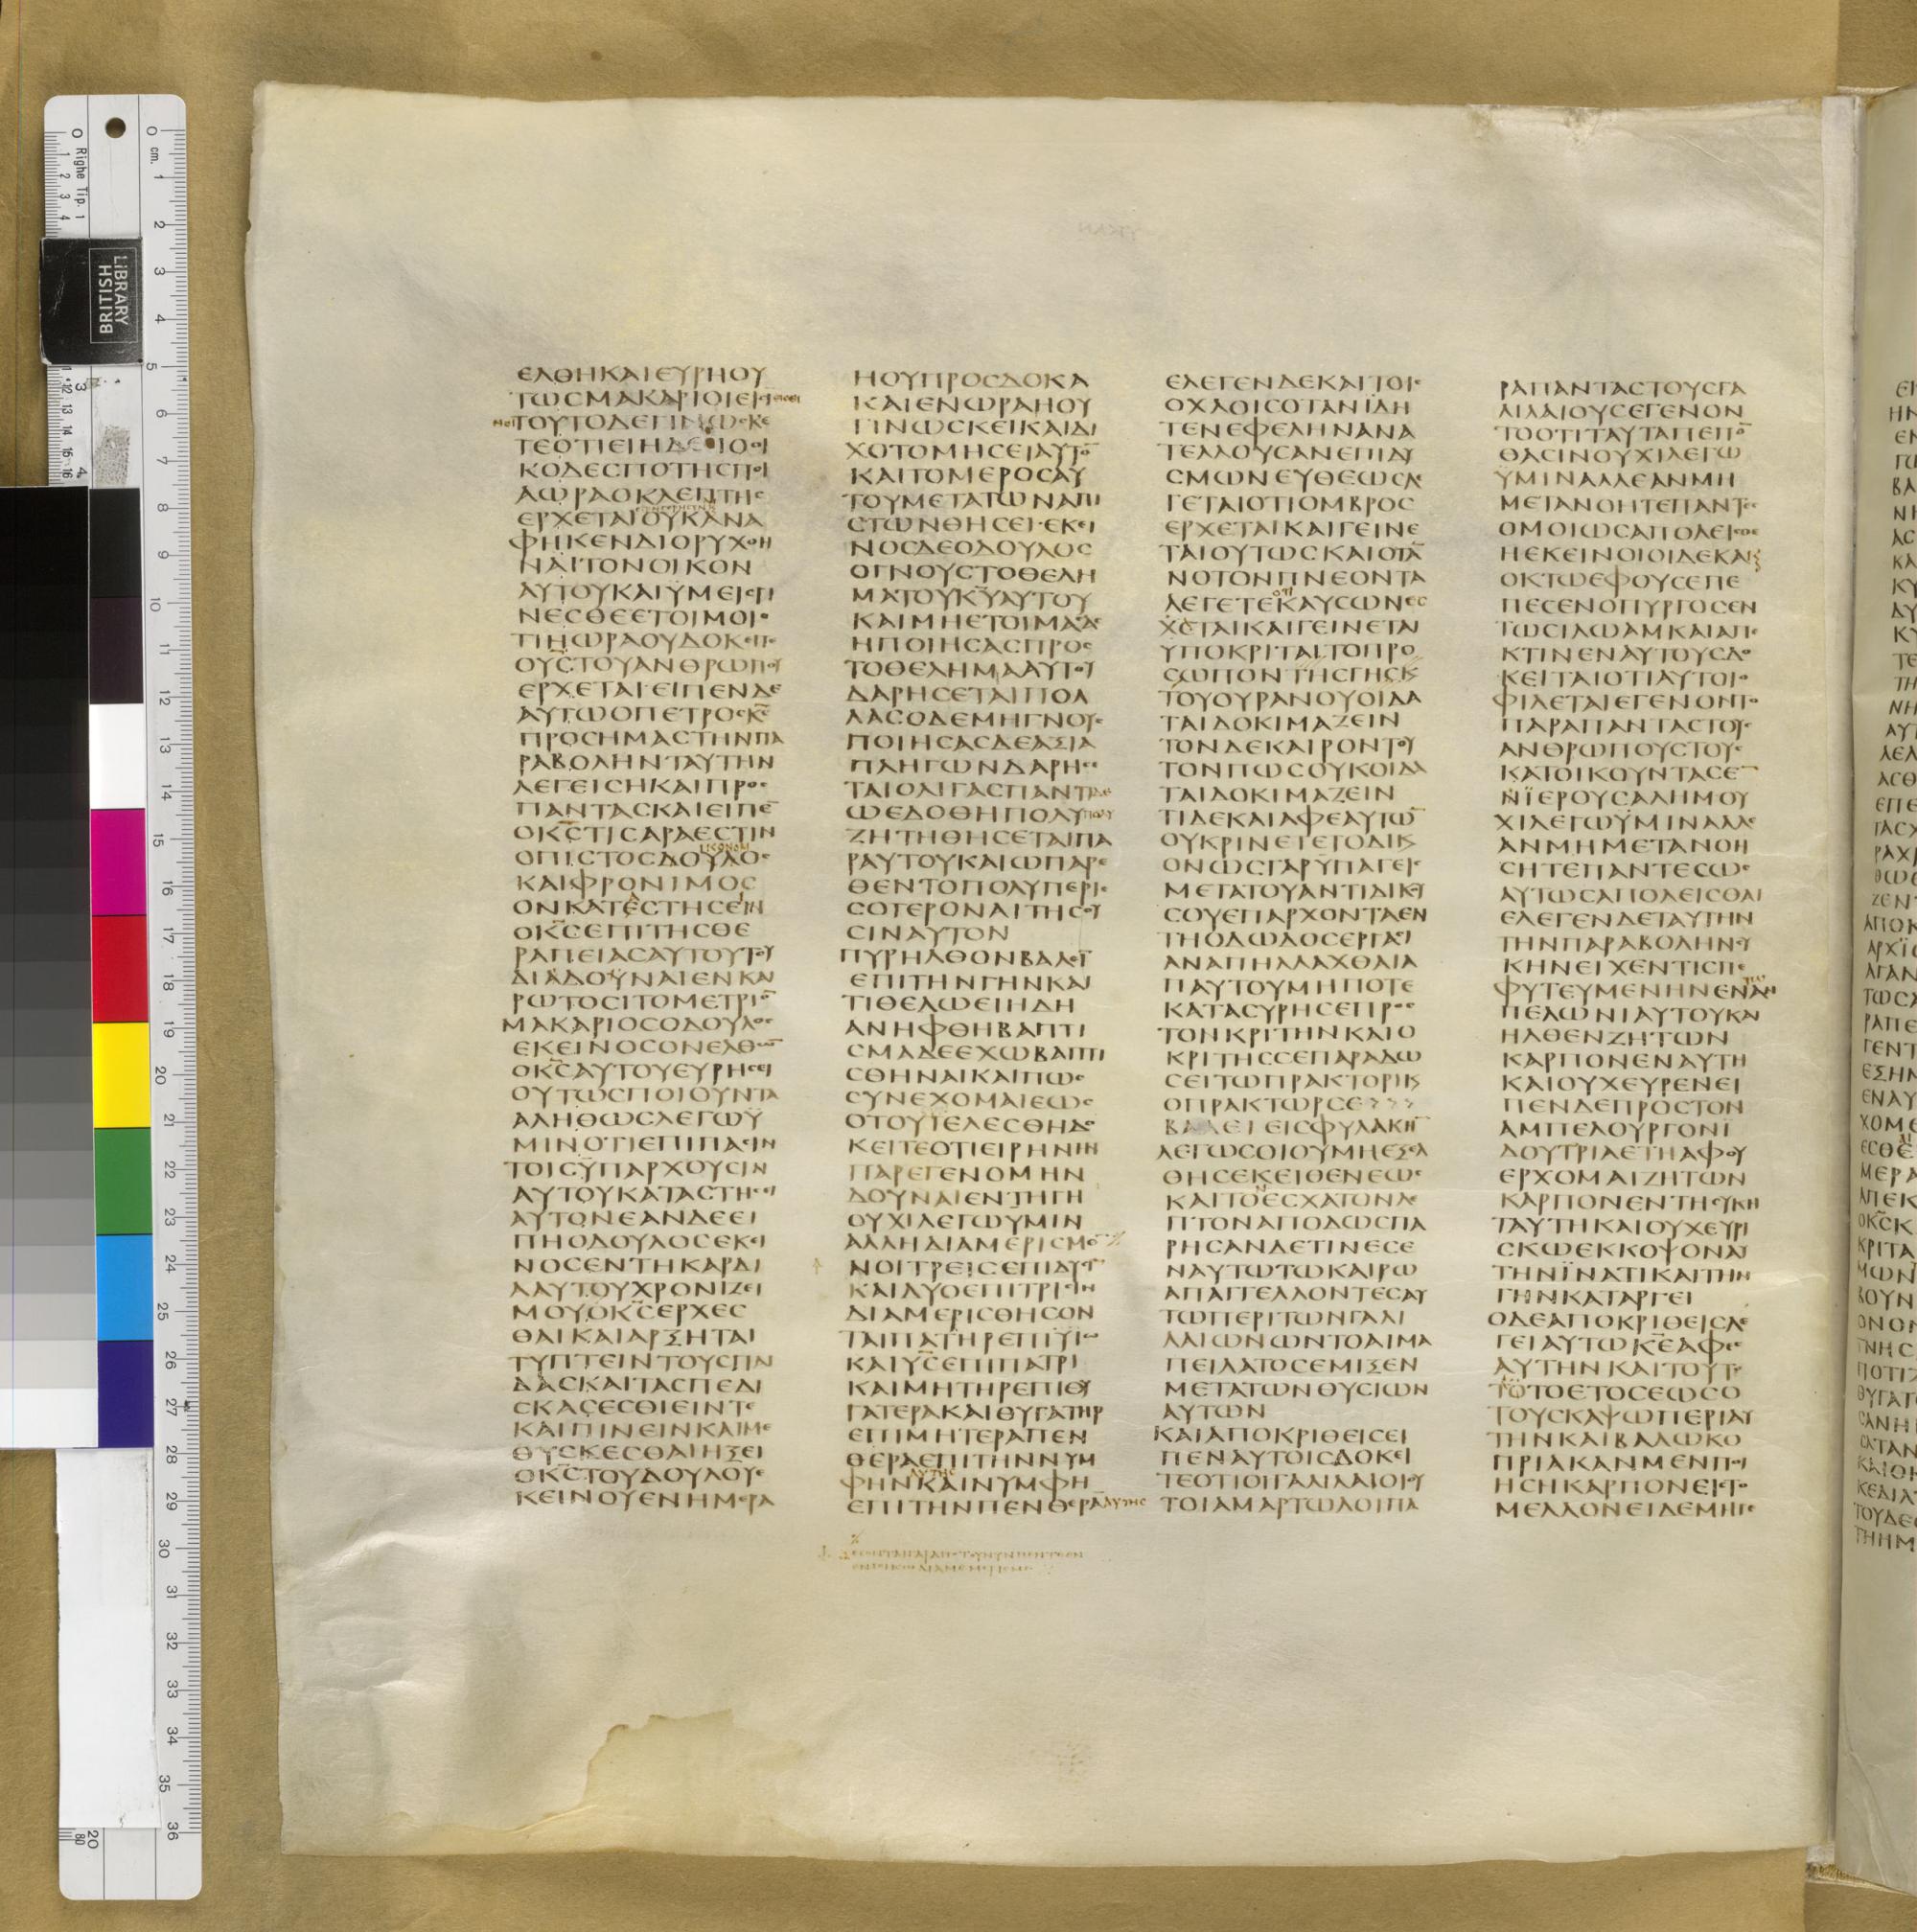 ΕΛΘΗΚΑΙΕΥΡΗΟΥ
ΤΩΣΜΑΚΑΡΙΟΙΕΙΣΙ
ΤΟΥΤΟΔΕΓΙΝΩΣΚΕ
ΤΕΟΤΙΕΙΗΔΕΙΟΟΙ
ΚΟΔΕΣΠΟΤΗΣΠΟΙ
ΑΩΡΑΟΚΛΕΠΤΗΣ
ΕΡΧΕΤΑΙΟΥΚΑΝΑ
ΦΗΚΕΝΔΙΟΡΥΧΘΗ
ΝΑΙΤΟΝΟΙΚΟΝ
ΑΥΤΟΥΚΑΙΥΜΕΙΣΓΙ
ΝΕΣΘΕΕΤΟΙΜΟΙΟ
ΤΙΗΩΡΑΟΥΔΟΚΕΙΤΕ
ΟΥΣ̅ΤΟΥΑΝΘΡΩΠΟΥ
ΕΡΧΕΤΑΙ·ΕΙΠΕΝΔΕ
ΑΥΤΩΟΠΕΤΡΟΣΚΕ̅
ΠΡΟΣΗΜΑΣΤΗΝΠΑ
ΡΑΒΟΛΗΝΤΑΥΤΗΝ
ΛΕΓΕΙΣΗΚΑΙΠΡΟΣ
ΠΑΝΤΑΣΚΑΙΕΙΠΕ̅
ΟΚΣ̅ΤΙΣΑΡΑΕΣΤΙΝ
ΟΠΙΣΤΟΣΔΟΥΛΟΣ
ΚΑΙΦΡΟΝΙΜΟΣ
ΟΝΚΑΤΕΣΤΗΣΕΙΝ
ΟΚΣ̅ΕΠΙΤΗΣΘΕ
ΡΑΠΕΙΑΣΑΥΤΟΥΤΟΥ
ΔΙΑΔΟΥΝΑΙΕΝΚΑΙ
ΡΩΤΟΣΙΤΟΜΕΤΡΙΟ̅
ΜΑΚΑΡΙΟΣΟΔΟΥΛΟΣ
ΕΚΕΙΝΟΣΟΝΕΛΘΩ̅
ΟΚΣ̅ΑΥΤΟΥΕΥΡΗΣΕΙ
ΟΥΤΩΣΠΟΙΟΥΝΤΑ
ΑΛΗΘΩΣΛΕΓΩΥ
ΜΙΝΟΤΙΕΠΙΠΑΣΙΝ
ΤΟΙΣΥΠΑΡΧΟΥΣΙΝ
ΑΥΤΟΥΚΑΤΑΣΤΗΣΕΙ
ΑΥΤΟΝΕΑΝΔΕΕΙ
ΠΗΟΔΟΥΛΟΣΕΚΕΙ
ΝΟΣΕΝΤΗΚΑΡΔΙ
ΑΑΥΤΟΥΧΡΟΝΙΖΕΙ
ΜΟΥΟΚΣ̅ΕΡΧΕΣ
ΘΑΙΚΑΙΑΡΞΗΤΑΙ
ΤΥΠΤΕΙΝΤΟΥΣΠΑΙ
ΔΑΣΚΑΙΤΑΣΠΕΔΙ
ΣΚΑΣΕΣΘΙΕΙΝΤΕ
ΚΑΙΠΙΝΕΙΝΚΑΙΜΕ
ΘΥΣΚΕΣΘΑΙΗΞΕΙ
ΟΚΣ̅ΤΟΥΔΟΥΛΟΥΕ
ΚΕΙΝΟΥΕΝΗΜΕΡΑ
ΗΟΥΠΡΟΣΔΟΚΑ
ΚΑΙΕΝΩΡΑΗΟΥ
ΓΙΝΩΣΚΕΙΚΑΙΔΙ
ΧΟΤΟΜΗΣΕΙΑΥΤΟ̅
ΚΑΙΤΟΜΕΡΟΣΑΥ
ΤΟΥΜΕΤΑΤΩΝΑΠΙ
ΣΤΩΝΘΗΣΕΙ·ΕΚΕΙ
ΝΟΣΔΕΟΔΟΥΛΟΣ
ΟΓΝΟΥΣΤΟΘΕΛΗ
ΜΑΤΟΥΚΥ̅ΑΥΤΟΥ
ΚΑΙΜΗΕΤΟΙΜΑΣΑΣ
ΗΠΟΙΗΣΑΣΠΡΟΣ
ΤΟΘΕΛΗΜΑΑΥΤΟΥ
ΔΑΡΗΣΕΤΑΙΠΟΛ
ΛΑΣΟΔΕΜΗΓΝΟΥΣ
ΠΟΙΗΣΑΣΔΕΑΞΙΑ
ΠΛΗΓΩΝΔΑΡΗΣΕ
ΤΑΙΟΛΙΓΑΣΠΑΝΤΙΔΕ
ΩΕΔΟΘΗΠΟΛΥΠΟΛΥ
ΖΗΤΗΘΗΣΕΤΑΙΠΑ
ΡΑΥΤΟΥΚΑΙΩΠΑΡΕ
ΘΕΝΤΟΠΟΛΥΠΕΡΙΣ
ΣΟΤΕΡΟΝΑΙΤΗΣΟΥ
ΣΙΝΑΥΤΟΝ
ΠΥΡΗΛΘΟΝΒΑΛΕΙ̅
ΕΠΙΤΗΝΓΗΝΚΑΙ
ΤΙΘΕΛΩΕΙΗΔΗ
ΑΝΗΦΘΗΒΑΠΤΙ
ΣΜΑΔΕΕΧΩΒΑΠΤΙ
ΣΘΗΝΑΙΚΑΙΠΩΣ
ΣΥΝΕΧΟΜΑΙΕΩΣ
ΟΤΟΥΤΕΛΕΣΘΗΔΟ
ΚΕΙΤΕΟΤΙΕΙΡΗΝΗΝ
ΠΑΡΕΓΕΝΟΜΗΝ
ΔΟΥΝΑΙΕΝΤΗΓΗ
ΟΥΧΙΛΕΓΩΥΜΙΝ
ΑΛΛΗΔΙΑΜΕΡΙΣΜΟ̅
ΝΟΙΤΡΕΙΣΕΠΙΔΥΣΙ̅
ΚΑΙΔΥΟΕΠΙΤΡΙΣΙΝ
ΔΙΑΜΕΡΙΣΘΗΣΟΝ
ΤΑΙΠΑΤΗΡΕΠΙΥΙΩ
ΚΑΙΥΣ̅ΕΠΙΠΑΤΡΙ
ΚΑΙΜΗΤΗΡΕΠΙΘΥ
ΓΑΤΕΡΑΚΑΙΘΥΓΑΤΗΡ
ΕΠΙΜΗΤΕΡΑΠΕΝ
ΘΕΡΑΕΠΙΤΗΝΝΥΜ
ΑΥΤΗΣ
ΦΗΝΚΑΙΝΥΜΦΗ
ΕΠΙΤΗΝΠΕΝΘΕΡΑ̅ΑΥΤΗΣ
ΕΛΕΓΕΝΔΕΚΑΙΤΟΙΣ
ΟΧΛΟΙΣΟΤΑΝΙΔΗ
ΤΕΝΕΦΕΛΗΝΑΝΑ
ΤΕΛΛΟΥΣΑΝΕΠΙΔΥ
ΣΜΩΝΕΥΘΕΩΣΛΕ
ΓΕΤΑΙΟΤΙΟΜΒΡΟΣ
ΕΡΧΕΤΑΙΚΑΙΓΕΙΝΕ
ΤΑΙΟΥΤΩΣΚΑΙΟΤΑ̅
ΝΟΤΟΝΠΝΕΟΝΤΑ
ΛΕΓΕΤΕΚΑΥΣΩΝΕΣ
ΧΕΤΑΙΚΑΙΓΕΙΝΕΤΑΙ
ΥΠΟΚΡΙΤΑΙΤΟΠΡΟ
ΣΩΠΟΝΤΗΣΓΗΣΚ
ΤΟΥΟΥΡΑΝΟΥΟΙΔΑ
ΤΑΙΔΟΚΙΜΑΖΕΙΝ
ΤΟΝΔΕΚΑΙΡΟΝΤΟΥ
ΤΟΝΠΩΣΟΥΚΟΙΔΑ
ΤΑΙΔΟΚΙΜΑΖΕΙΝ
ΤΙΔΕΚΑΙΑΦΕΑΥΤΩ̅
ΟΥΚΡΙΝΕΤΕΤΟΔΙΚ
ΟΝΩΣΓΑΡΥΠΑΓΕΙΣ
ΜΕΤΑΤΟΥΑΝΤΙΔΙΚΟΥ
ΣΟΥΕΠΑΡΧΟΝΤΑΕΝ
ΤΗΟΔΩΔΟΣΕΡΓΑΣΙ
ΑΝΑΠΗΛΛΑΧΘΑΙΑ
ΠΑΥΤΟΥΜΗΠΟΤΕ
ΚΑΤΑΣΥΡΗΣΕΠΡΟΣ
ΤΟΝΚΡΙΤΗΝΚΑΙΟ
ΚΡΙΤΗΣΣΕΠΑΡΑΔΩ
ΣΕΙΤΩΠΡΑΚΤΟΡΙΚ
ΟΠΡΑΚΤΩΡΣΕ
ΒΑΛΕΙΕΙΣΦΥΛΑΚΗ̅
ΛΕΓΩΣΟΙΟΥΜΗΕΞΕΛ
ΘΗΣΕΚΕΙΘΕΝΕΩΣ
ΚΑΙΤΟΕΣΧΑΤΟΝΛΕ
ΠΤΟΝΑΠΟΔΩΣΠΑ
ΡΗΣΑΝΔΕΤΙΝΕΣΕ
ΝΑΥΤΩΤΩΚΑΙΡΩ
ΑΠΑΓΓΕΛΛΟΝΤΕΣΑΥ
ΤΩΠΕΡΙΤΩΝΓΑΛΙ
ΛΑΙΩΝΩΝΤΟΑΙΜΑ
ΠΕΙΛΑΤΟΣΕΜΙΞΕΝ
ΜΕΤΑΤΩΝΘΥΣΙΩΝ
ΑΥΤΩΝ
ΚΑΙΑΠΟΚΡΙΘΕΙΣΕΙ
ΠΕΝΑΥΤΟΙΣΔΟΚΕΙ
ΤΕΟΤΙΟΙΓΑΛΙΛΑΙΟΙΟΥ
ΤΟΙΑΜΑΡΤΩΛΟΙΠΑ
ΡΑΠΑΝΤΑΣΤΟΥΣΓΑ
ΛΙΛΑΙΟΥΣΕΓΕΝΟΝ
ΤΟΟΤΙΤΑΥΤΑΠΕΠΟ̅
ΘΑΣΙΝΟΥΧΙΛΕΓΩ
ΥΜΙΝΑΛΛΕΑΝΜΗ
ΜΕΤΑΝΟΗΤΕΠΑΝΤΕΣ
ΟΜΟΙΩΣΑΠΟΛΕΙΣΘΕ
ΗΕΚΕΙΝΟΙΟΙΔΕΚΑΙ
ΟΚΤΩΕΦΟΥΣΕΠΕ
ΠΕΣΕΝΟΠΥΡΓΟΣΕΝ
ΤΩΣΙΛΩΑΜΚΑΙΑΠΕ
ΚΤΙΝΕΝΑΥΤΟΥΣΔΟ
ΚΕΙΤΑΙΟΤΙΑΥΤΟΙΟ
ΦΙΛΕΤΑΙΕΓΕΝΟΝΤΟ
ΠΑΡΑΠΑΝΤΑΣΤΟΥΣ
ΑΝΘΡΩΠΟΥΣΤΟΥΣ
ΚΑΤΟΙΚΟΥΝΤΑΣΕ̅
ΝΙΕΡΟΥΣΑΛΗΜΟΥ
ΧΙΛΕΓΩΥΜΙΝΑΛΛΕ
ΑΝΜΗΜΕΤΑΝΟΗ
ΣΗΤΕΠΑΝΤΕΣΩΣ
ΑΥΤΩΣΑΠΟΛΕΙΣΘΑΙ
ΕΛΕΓΕΝΔΕΤΑΥΤΗΝ
ΤΗΝΠΑΡΑΒΟΛΗΝΣΥ
ΚΗΝΕΙΧΕΝΤΙΣΠΕ
ΦΥΤΕΥΜΕΝΗΝΕΝΑΜ
ΠΕΛΩΝΙΑΥΤΟΥΚΑΙ
ΗΛΘΕΝΖΗΤΩΝ
ΚΑΡΠΟΝΕΝΑΥΤΗ
ΚΑΙΟΥΧΕΥΡΕΝΕΙ
ΠΕΝΔΕΠΡΟΣΤΟΝ
ΑΜΠΕΛΟΥΡΓΟΝΙ
ΔΟΥΤΡΙΑΕΤΗΑΦΟΥ
ΕΡΧΟΜΑΙΖΗΤΩΝ
ΚΑΡΠΟΝΕΝΤΗΣΥΚΗ
ΤΑΥΤΗΚΑΙΟΥΧΕΥΡΙ
ΣΚΩΕΚΚΟΨΟΝΑΥ
ΤΗΝΙΝΑΤΙΚΑΙΤΗΝ
ΓΗΝΚΑΤΑΡΓΕΙ
ΟΔΕΑΠΟΚΡΙΘΕΙΣΛΕ
ΓΕΙΑΥΤΩΚΕ̅ΑΦΕΣ
ΑΥΤΗΝΚΑΙΤΟΥΤ
ΤΟΤΟΕΤΟΣΕΩΣΟ
ΤΟΥΣΚΑΨΩΠΕΡΙΑΥ
ΤΗΝΚΑΙΒΑΛΩΚΟ
ΠΡΙΑΚΑΝΜΕΝΠΟΙ
ΗΣΗΚΑΡΠΟΝΕΙΣΤΟ
ΜΕΛΛΟΝΕΙΔΕΜΗΓΕ
LIBRARY
BRITISH